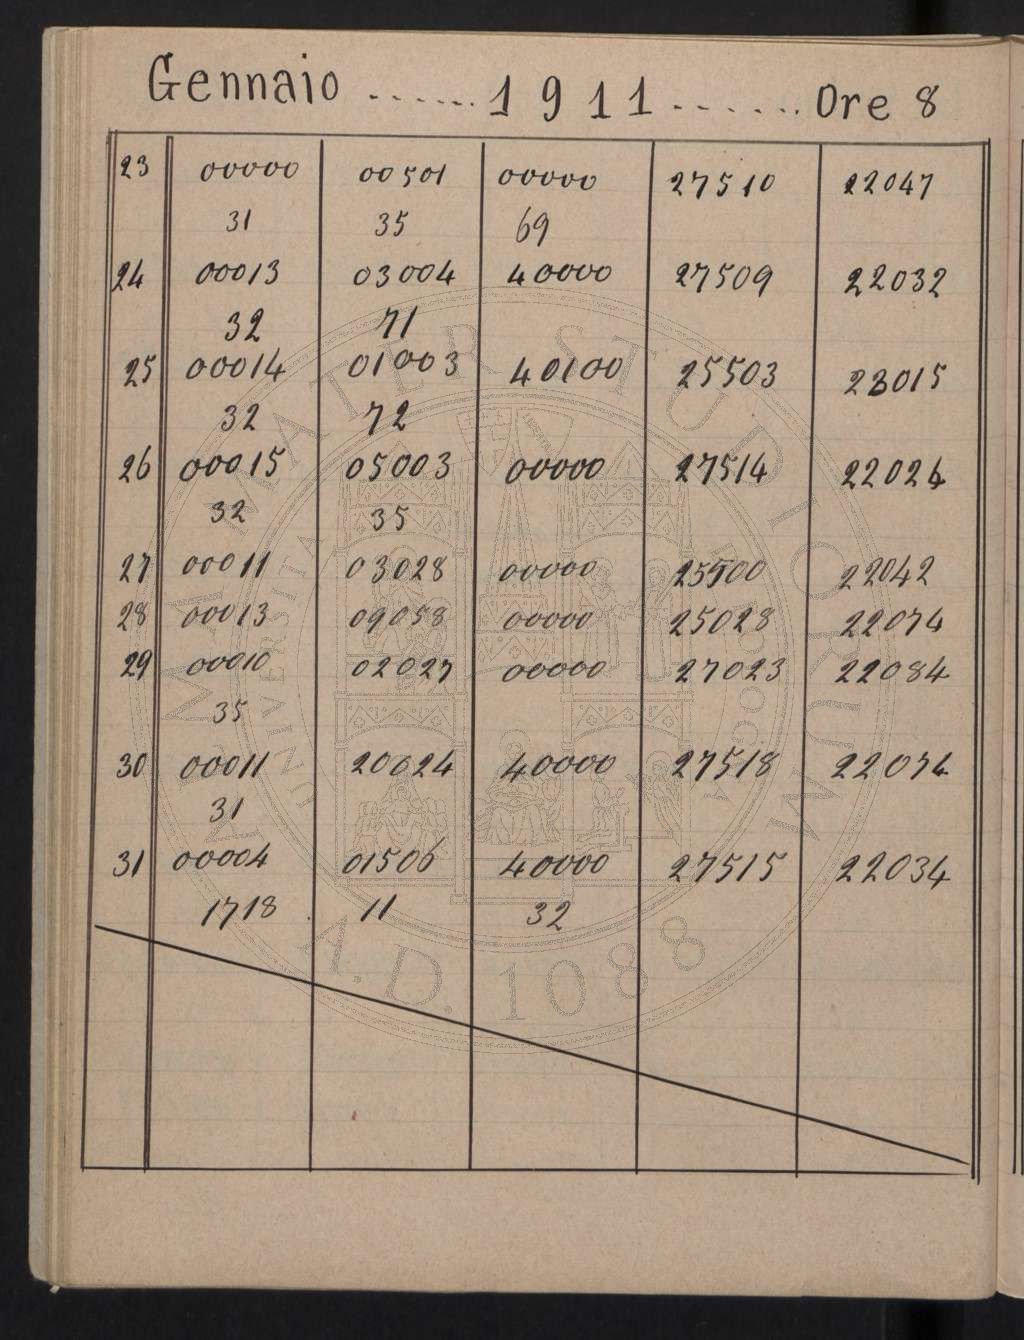 Gennaio ...... 1911 ...... Ore 8
23 00000 00501 00000 27510 22047
31 35 69
24 00013 03004 40000 27509 22032
32 71
25 00014 01003 40100 25503 23015
32 72
26 00015 05003 00000 27514 22024
32 35
27 00011 03028 00000 25500 22042
28 00013 09058 00000 25028 22074
29 00010 02027 00000 27023 22084
35
30 00011 20024 40000 27518 22074
31
31 00004 01506 40000 27515 22034
1718 11 32
ALMA MATER STUDIORUM
A.D. 1088